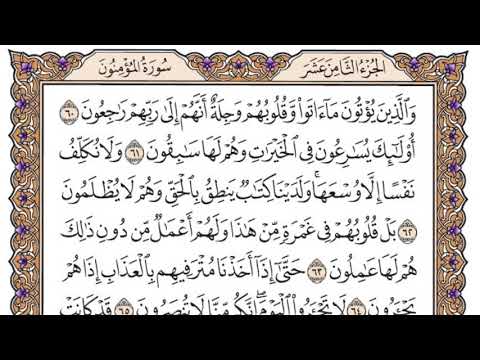 سُورَةُ المُؤْمِنُون الجُزْءُ الثَّامِنَ عَشَرَ
وَٱلَّذِينَ يُؤْتُونَ مَآ ءَاتَوا۟ وَّقُلُوبُهُمْ وَجِلَةٌ أَنَّهُمْ إِلَىٰ رَبِّهِمْ رَٰجِعُونَ ٦٠
أُو۟لَٰٓئِكَ يُسَٰرِعُونَ فِى ٱلْخَيْرَٰتِ وَهُمْ لَهَا سَٰبِقُونَ ٦١ وَلَا نُكَلِّفُ
نَفْسًا إِلَّا وُسْعَهَا ۖ وَلَدَيْنَا كِتَٰبٌ يَنطِقُ بِٱلْحَقِّ ۚ وَهُمْ لَا يُظْلَمُونَ
٦٢ بَلْ قُلُوبُهُمْ فِى غَمْرَةٍ مِّنْ هَٰذَا وَلَهُمْ أَعْمَٰلٌ مِّن دُونِ ذَٰلِكَ
هُمْ لَهَا عَٰمِلُونَ ٦٣ حَتَّىٰٓ إِذَآ أَخَذْنَا مُتْرَفِيهِم بِٱلْعَذَابِ إِذَا هُمْ
يَجْـَٔرُونَ ٦٤ لَا تَجْـَٔرُوا۟ ٱلْيَوْمَ ۖ إِنَّكُم مِّنَّا لَا تُنصَرُونَ ٦٥ قَدْ كَانَتْ